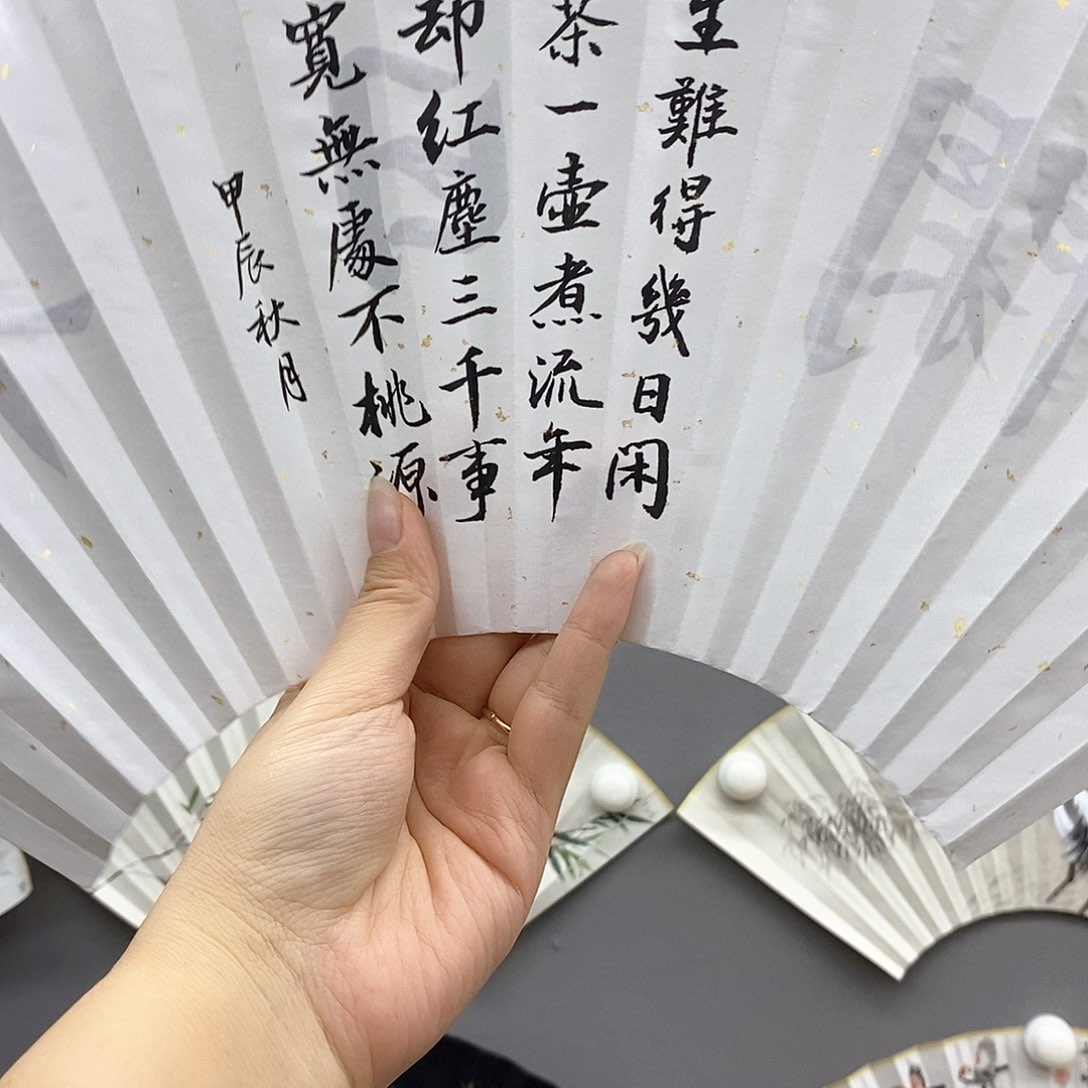 生難得幾日閑
茶一壺煮流年
却紅塵三千事
寬無處不桃源
甲辰秋月